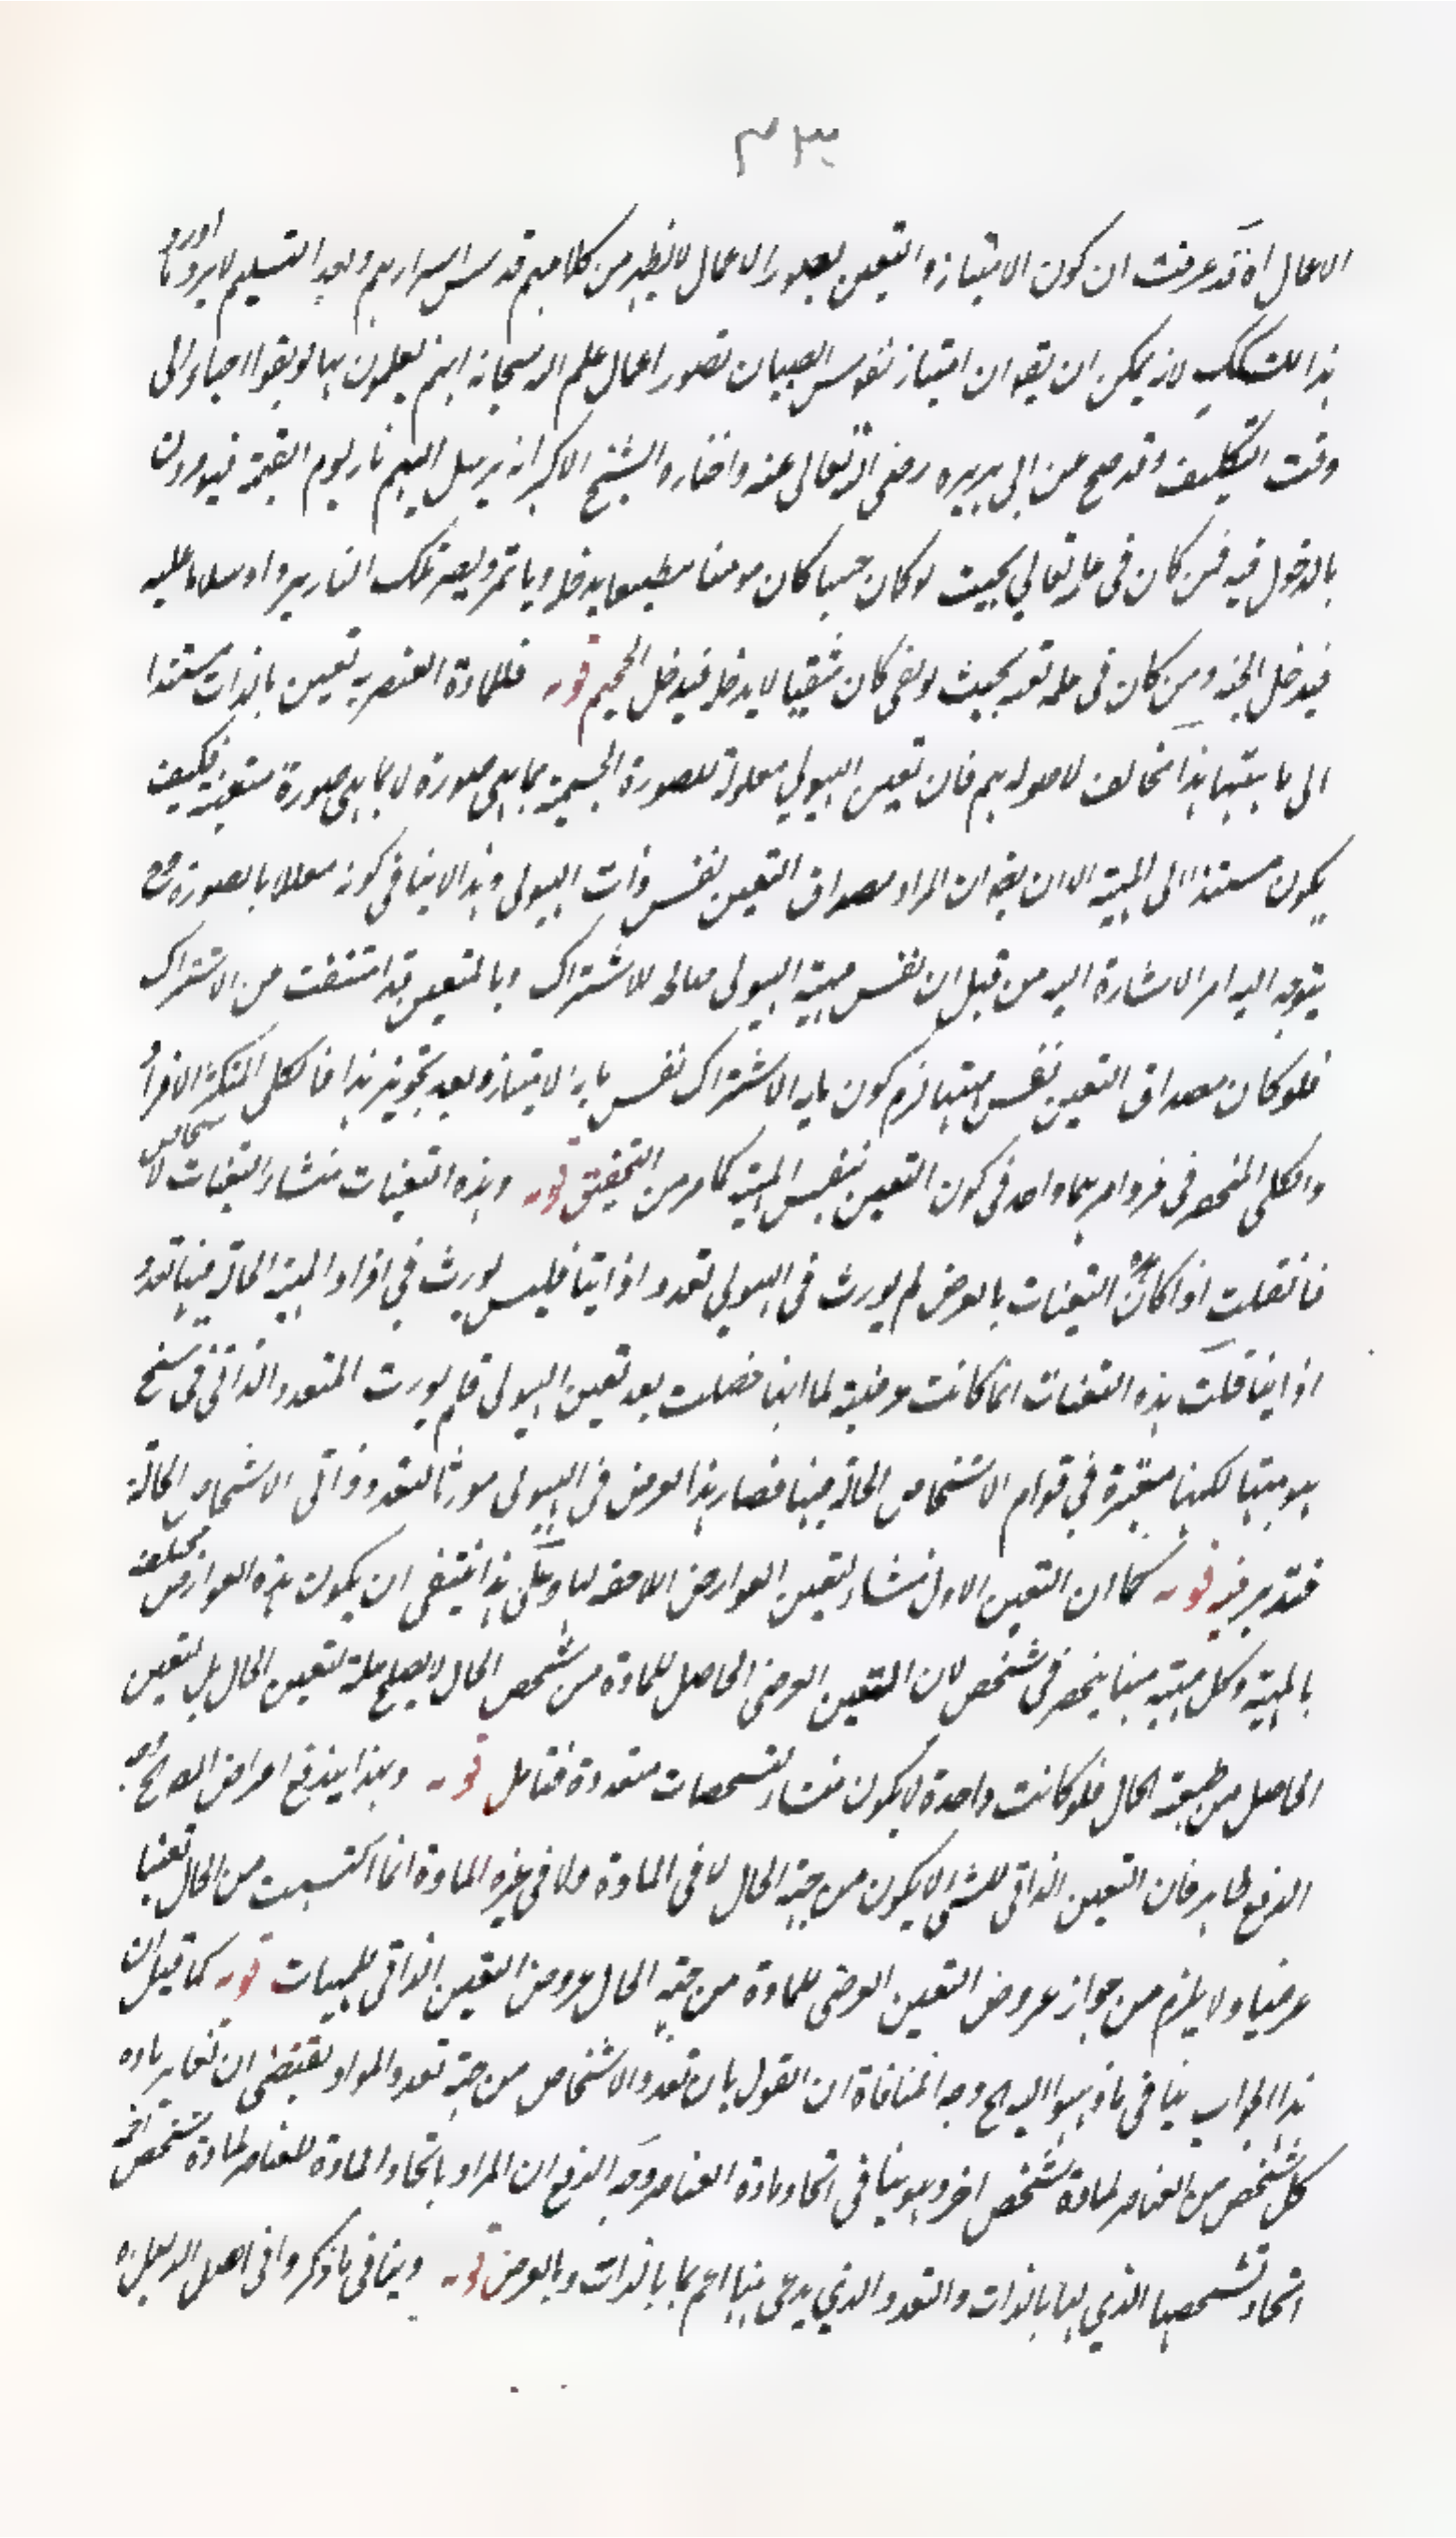 الاعمال اه قد عرفت ان كون الامتياز و التعين بصور الاعمال لا يظهر من كلامهم قدس اسرارهم و بعد التسليم لا يرد ما اورد
هذا المشكك لانه يمكن ان يقه ان امتياز نفوس الصبيان بصور اعمال علم الله سبحانه انهم يعلمون بها لو بقوا احياء الى
وقت التكليف و قد صح عن ابى هريره رضى الله تعالى عنه و اختاره الشيخ الاكبر انه يرسل اليهم نار يوم القيمة فيؤمرون
بالدخول فيه فمن كان فى علمه تعالى بحيث لو كان حييا كان مومنا مطيعا يدخل و ياتمر و يصير تلك النار بردا و سلاما عليه
فيدخل الجنه و من كان فى علمه تعه بحيث لو بقى كان شقيا لا يدخل فيدخل الجحيم قوله فللمادة العنصريه تعين بالذات مستندا
الى ماهيتها هذا مخالف لاصولهم فان تعين الهيولى معلولة للصورة الجسمية بما هى صورة لا بما هى صورة متعينة فكيف
يكون مستندا الى المهية الا ان يقه ان المراد مصداق التعين نفس ذات الهيولى و هذا لا ينافى كونه معللا بالصورة مع
يتوجه اليه امر الاشارة اليه من قبل ان نفس مهية الهيولى صالحة للاشتراك و بالتعين قد امتنعت من الاشتراك
فلو كان مصداق التعين نفس مهيتها لزم كون ما به الاشتراك نفس ما به الامتياز و بعد تجويز هذا فالكلى المتكثر الافراد
و الكلى المنحصر فى فرد امرهما واحد فى كون التعين بنفس المهية كما مر من التحقيق قوله و هذه التعينات منشاء لتعينات الاشخاص
فان قلت اذا كان هذه التعينات بالعرض لم يورث فى الهيولى تعددا ذاتيا فليس يورث فى افراد المهية الحالة فيها تعددا
ذاتيا قلت هذه التعينات انما كانت عرضية لما انها فضلت بعد تعين الهيولى فلم يورث التعدد الذاتى فى سنخ
هو هيتها لكنها معتبرة فى قوام الاشخاص الحالة فيها فصار هذا العرض فى الهيولى مورثا لتعدد ذاتى الاشخاص الحالة
فتدبر فيه قوله كما ان التعين الاول منشاء لتعين العوارض اللاحقه لها و على هذا ينبغى ان يكون هذه العوارض مختلفه
بالمهية و كل مهية منها ينحصر فى شخص لان التعين العرضى الحاصل للمادة من شخص الحال لا يصلح علة لتعين الحال بل لتعين
الحاصل من طبيعة الحال فلو كانت واحدة لا يكون منشاء لتشخصات متعددة فتامل قوله و بهذا يندفع اعراض اه
الدفع ظاهر فان التعين الذاتى للشى لا يكون من جهة الحال لا فى المادة و لا فى غيره المادة انما اكتسبت من الحال تعينا
عرضيا و لا يلزم من جواز عروض التعين العرضى للمادة من جهة الحال عروض التعين الذاتى للمهيات قوله كما قيل ان
هذا الجواب ينافى ما ذهبوا اليه الخ وجه المنافاة ان القول بان تعدد الاشخاص من جهة تعدد المواد يقتضى ان تغاير مادة
كل شخص من العناصر لمادة شخص اخر و هو ينافى اتحاد مادة العناصر و وجه الدفع ان المراد باتحاد المادة للعناصر لمادة شخص اخر
اتحاد تشخصها الذى لها بالذات و التعدد الذى يدعى ههنا اعم مما بالذات و بالعرض قوله و ينافى ما ذكروا فى اصل الدليل اه